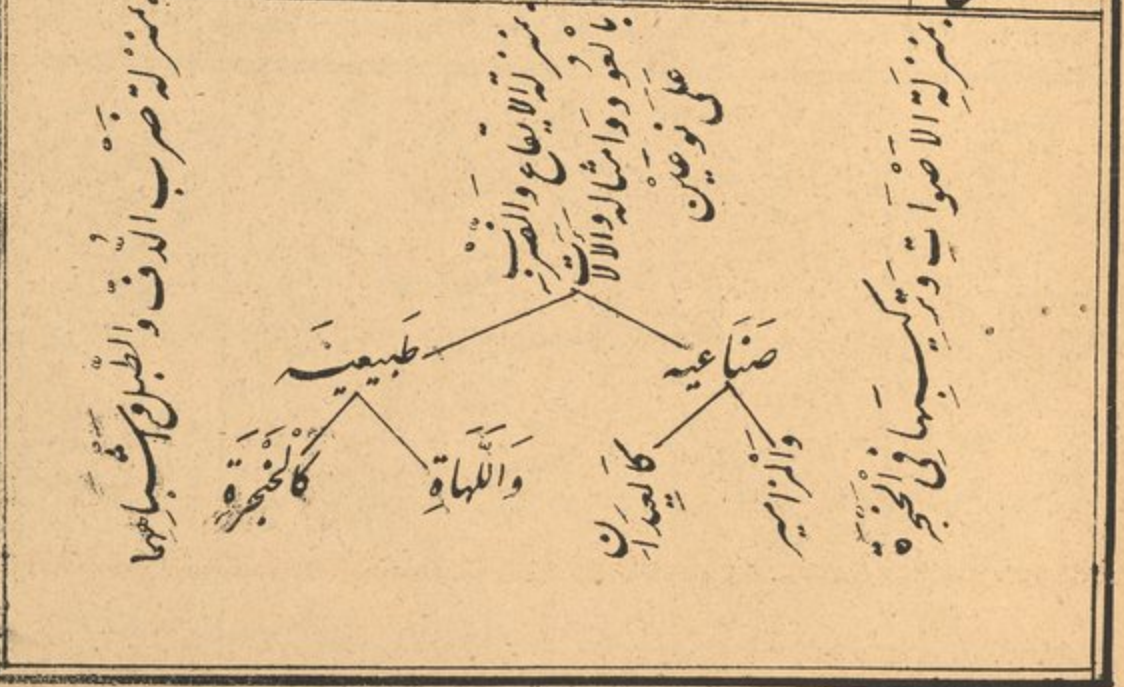 بمنزلة الاصوات وتركيبها في الحنجرة
بمنزلة الايقاع والضرب
بالعود وامثاله والالات
على نوعين
صناعيه
طبيعيه
والمزامير
كالعيدان
واللهاة
كالحنجرة
بمنزلة ضرب الدف والطبل واشباههما